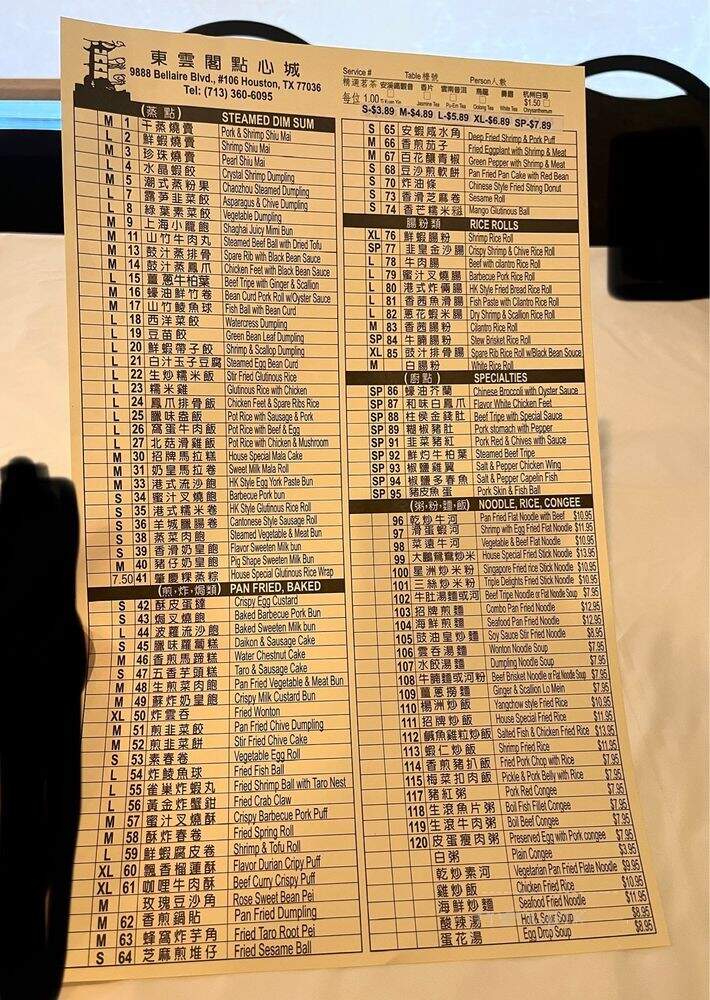 東雲閣點心城
9888 Bellaire Blvd., #106 Houston, TX 77036
Tel: (713) 360-6095
Service # Table 檯號 Person 人數
精選茗茶 安溪鐵觀音 香片 雲南普洱 烏龍 壽眉 杭州白菊
每位 1.00 Ti Kuan Yin Jasmine Tea Pu-Erh Tea Oolong Tea White Tea $1.50 Chrysanthemum
S-$3.89 M-$4.89 L-$5.89 XL-$6.89 SP-$7.89
(蒸點) STEAMED DIM SUM
M 1 干蒸燒賣 Pork & Shrimp Shiu Mai
L 2 鮮蝦燒賣 Shrimp Shiu Mai
M 3 珍珠燒賣 Pearl Shiu Mai
L 4 水晶蝦餃 Crystal Shrimp Dumpling
M 5 潮式蒸粉果 Chaozhou Steamed Dumpling
L 7 露笋韭菜餃 Asparagus & Chive Dumpling
L 8 綠葉素菜餃 Vegetable Dumpling
M 9 上海小龍飽 Shaghai Juicy Mimi Bun
M 11 山竹牛肉丸 Steamed Beef Ball with Dried Tofu
M 13 鼓汁蒸排骨 Spare Rib with Black Bean Sauce
M 14 鼓汁蒸鳳爪 Chicken Feet with Black Bean Sauce
L 15 薑蔥牛柏葉 Beef Tripe with Ginger & Scallion
M 16 蠔油鮮竹卷 Bean Curd Pork Roll w/Oyster Sauce
M 17 山竹鯪魚球 Fish Ball with Bean Curd
L 18 西洋菜餃 Watercress Dumpling
L 19 豆苗餃 Green Bean Leaf Dumpling
L 20 鮮蝦帶子餃 Shrimp & Scallop Dumpling
L 21 白汁玉子豆腐 Steamed Egg Bean Curd
L 22 生炒糯米飯 Stir Fried Glutinous Rice
L 23 糯米雞 Glutinous Rice with Chicken
L 24 鳳爪排骨飯 Chicken Feet & Spare Ribs Rice
L 25 臘味盅飯 Pot Rice with Sausage & Pork
L 26 窩蛋牛肉飯 Pot Rice with Beef & Egg
L 27 北菇滑雞飯 Pot Rice with Chicken & Mushroom
M 30 招牌馬拉糕 House Special Mala Cake
M 31 奶皇馬拉卷 Sweet Milk Mala Roll
M 33 港式流沙飽 HK Style Egg York Paste Bun
S 34 蜜汁叉燒飽 Barbecue Pork bun
S 35 港式糯米卷 HK Style Glutinous Rice Roll
S 36 羊城臘腸卷 Cantonese Style Sausage Roll
S 38 蒸菜肉飽 Steamed Vegetable & Meat Bun
S 39 香滑奶皇飽 Flavor Sweeten Milk bun
M 40 豬仔奶皇飽 Pig Shape Sweeten Milk Bun
7.50 41 肇慶粿蒸粽 House Special Glutinous Rice Wrap
(煎·炸·焗類) PAN FRIED, BAKED
S 42 酥皮蛋撻 Crispy Egg Custard
S 43 焗叉燒飽 Baked Barbecue Pork Bun
L 44 波蘿流沙飽 Baked Sweeten Milk bun
S 45 臘味蘿蔔糕 Daikon & Sausage Cake
M 46 香煎馬蹄糕 Water Chestnut Cake
S 47 五香芋頭糕 Taro & Sausage Cake
M 48 生煎菜肉飽 Pan Fried Vegetable & Meat Bun
M 49 蘇炸奶皇飽 Crispy Milk Custard Bun
XL 50 炸雲吞 Fried Wonton
M 51 煎韭菜餃 Pan Fried Chive Dumpling
M 52 煎韭菜餅 Stir Fried Chive Cake
S 53 素春卷 Vegetable Egg Roll
L 54 炸鯪魚球 Fried Fish Ball
L 55 雀巢炸蝦丸 Fried Shrimp Ball with Taro Nest
L 56 黃金炸蟹鉗 Fried Crab Claw
M 57 蜜汁叉燒酥 Crispy Barbecue Pork Puff
M 58 酥炸春卷 Fried Spring Roll
L 59 鮮蝦腐皮卷 Shrimp & Tofu Roll
XL 60 飄香榴蓮酥 Flavor Durian Cripy Puff
XL 61 咖哩牛肉酥 Beef Curry Crispy Puff
M 玫瑰豆沙角 Rose Sweet Bean Pei
M 62 香煎鍋貼 Pan Fried Dumpling
M 63 蜂窩炸芋角 Fried Taro Root Pei
S 64 芝麻煎堆仔 Fried Sesame Ball
S 65 安蝦咸水角 Deep Fried Shrimp & Pork Puff
M 66 香煎茄子 Fried Eggplant with Shrimp & Meat
M 67 百花釀青椒 Green Pepper with Shrimp & Meat
S 68 豆沙煎軟餅 Pan Fried Pan Cake with Red Bean
S 70 炸油條 Chinese Style Fried String Donut
S 73 香滑芝麻卷 Sesame Roll
S 74 香芒糯米糍 Mango Glutinous Ball
腸粉類 RICE ROLLS
XL 76 鮮蝦腸粉 Shrimp Rice Roll
SP 77 韭皇金沙腸 Crispy Shrimp & Chive Rice Roll
L 78 牛肉腸 Beef with cilantro Rice Roll
L 79 蜜汁叉燒腸 Barbecue Pork Rice Roll
L 80 港式炸倆腸 HK Style Fried Bread Rice Roll
L 81 香茜魚滑腸 Fish Paste with Cilantro Rice Roll
L 82 蔥花蝦米腸 Dry Shrimp & Scallion Rice Roll
M 83 香茜腸粉 Cilantro Rice Roll
SP 84 牛腩腸粉 Stew Brisket Rice Roll
XL 85 豉汁排骨腸 Spare Rib Rice Roll w/Black Bean Souce
M 白腸粉 White Rice Roll
(廚點) SPECIALTIES
SP 86 蠔油芥蘭 Chinese Broccoli with Oyster Sauce
SP 87 和味白鳳爪 Flavor White Chicken Feet
SP 88 柱侯金錢肚 Beef Tripe with Special Sauce
SP 89 糊椒豬肚 Pork stomach with Pepper
SP 91 韭菜豬紅 Pork Red & Chives with Sauce
SP 92 鮮灼牛柏葉 Steamed Beef Tripe
SP 93 椒鹽雞翼 Salt & Pepper Chicken Wing
SP 94 椒鹽多春魚 Salt & Pepper Capelin Fish
SP 95 豬皮魚蛋 Pork Skin & Fish Ball
(粥·粉·麵·飯) NOODLE, RICE, CONGEE
96 乾炒牛河 Pan Fried Flat Noodle with Beef $10.95
97 滑蛋蝦河 Shrimp with Egg Fried Flat Noodle $11.95
98 菜遠牛河 Vegetable & Beef Flat Noodle $10.95
99 大鵬鴛鴦炒米 House Special Fried Stick Noodle $13.95
100 星洲炒米粉 Singapore Fried rice Stick Noodle $10.95
101 三絲炒米粉 Triple Delights Fried Stick Noodle $10.95
102 牛肚湯麵或河 Beef Tripe Noodle or Flat Noodle Soup $7.95
103 招牌煎麵 Combo Pan Fried Noodle $12.95
104 海鮮煎麵 Seafood Pan Fried Noodle $12.95
105 豉油皇炒麵 Soy Sauce Stir Fried Noodle $8.95
106 雲吞湯麵 Wonton Noodle Soup $7.95
107 水餃湯麵 Dumpling Noodle Soup $7.95
108 牛腩麵或河粉 Beef Brisket Noodle or Flat Noodle Soup $7.95
109 薑蔥撈麵 Ginger & Scallion Lo Mein $7.95
110 楊洲炒飯 Yangchow style Fried Rice $10.95
111 招牌炒飯 House Special Fried Rice $11.95
112 鹹魚雞粒炒飯 Salted Fish & Chicken Fried Rice $13.95
113 蝦仁炒飯 Shrimp Fried Rice $11.95
114 香煎豬扒飯 Fried Pork Chop with Rice $7.95
115 梅菜扣肉飯 Pickle & Pork Belly with Rice $7.95
117 豬紅粥 Pork Red Congee $7.95
118 生滾魚片粥 Boil Fish Fillet Congee $7.95
119 生滾牛肉粥 Boil Beef Congee $7.95
120 皮蛋瘦肉粥 Preserved Egg with Pork congee $7.95
白粥 Plain Congee $3.95
乾炒素河 Vegetarian Pan Fried Flate Noodle $9.95
雞炒飯 Chicken Fried Rice $10.95
海鮮炒麵 Seafood Fried Noodle $11.95
酸辣湯 Hot & Sour Soup $8.95
蛋花湯 Egg Drop Soup $8.95